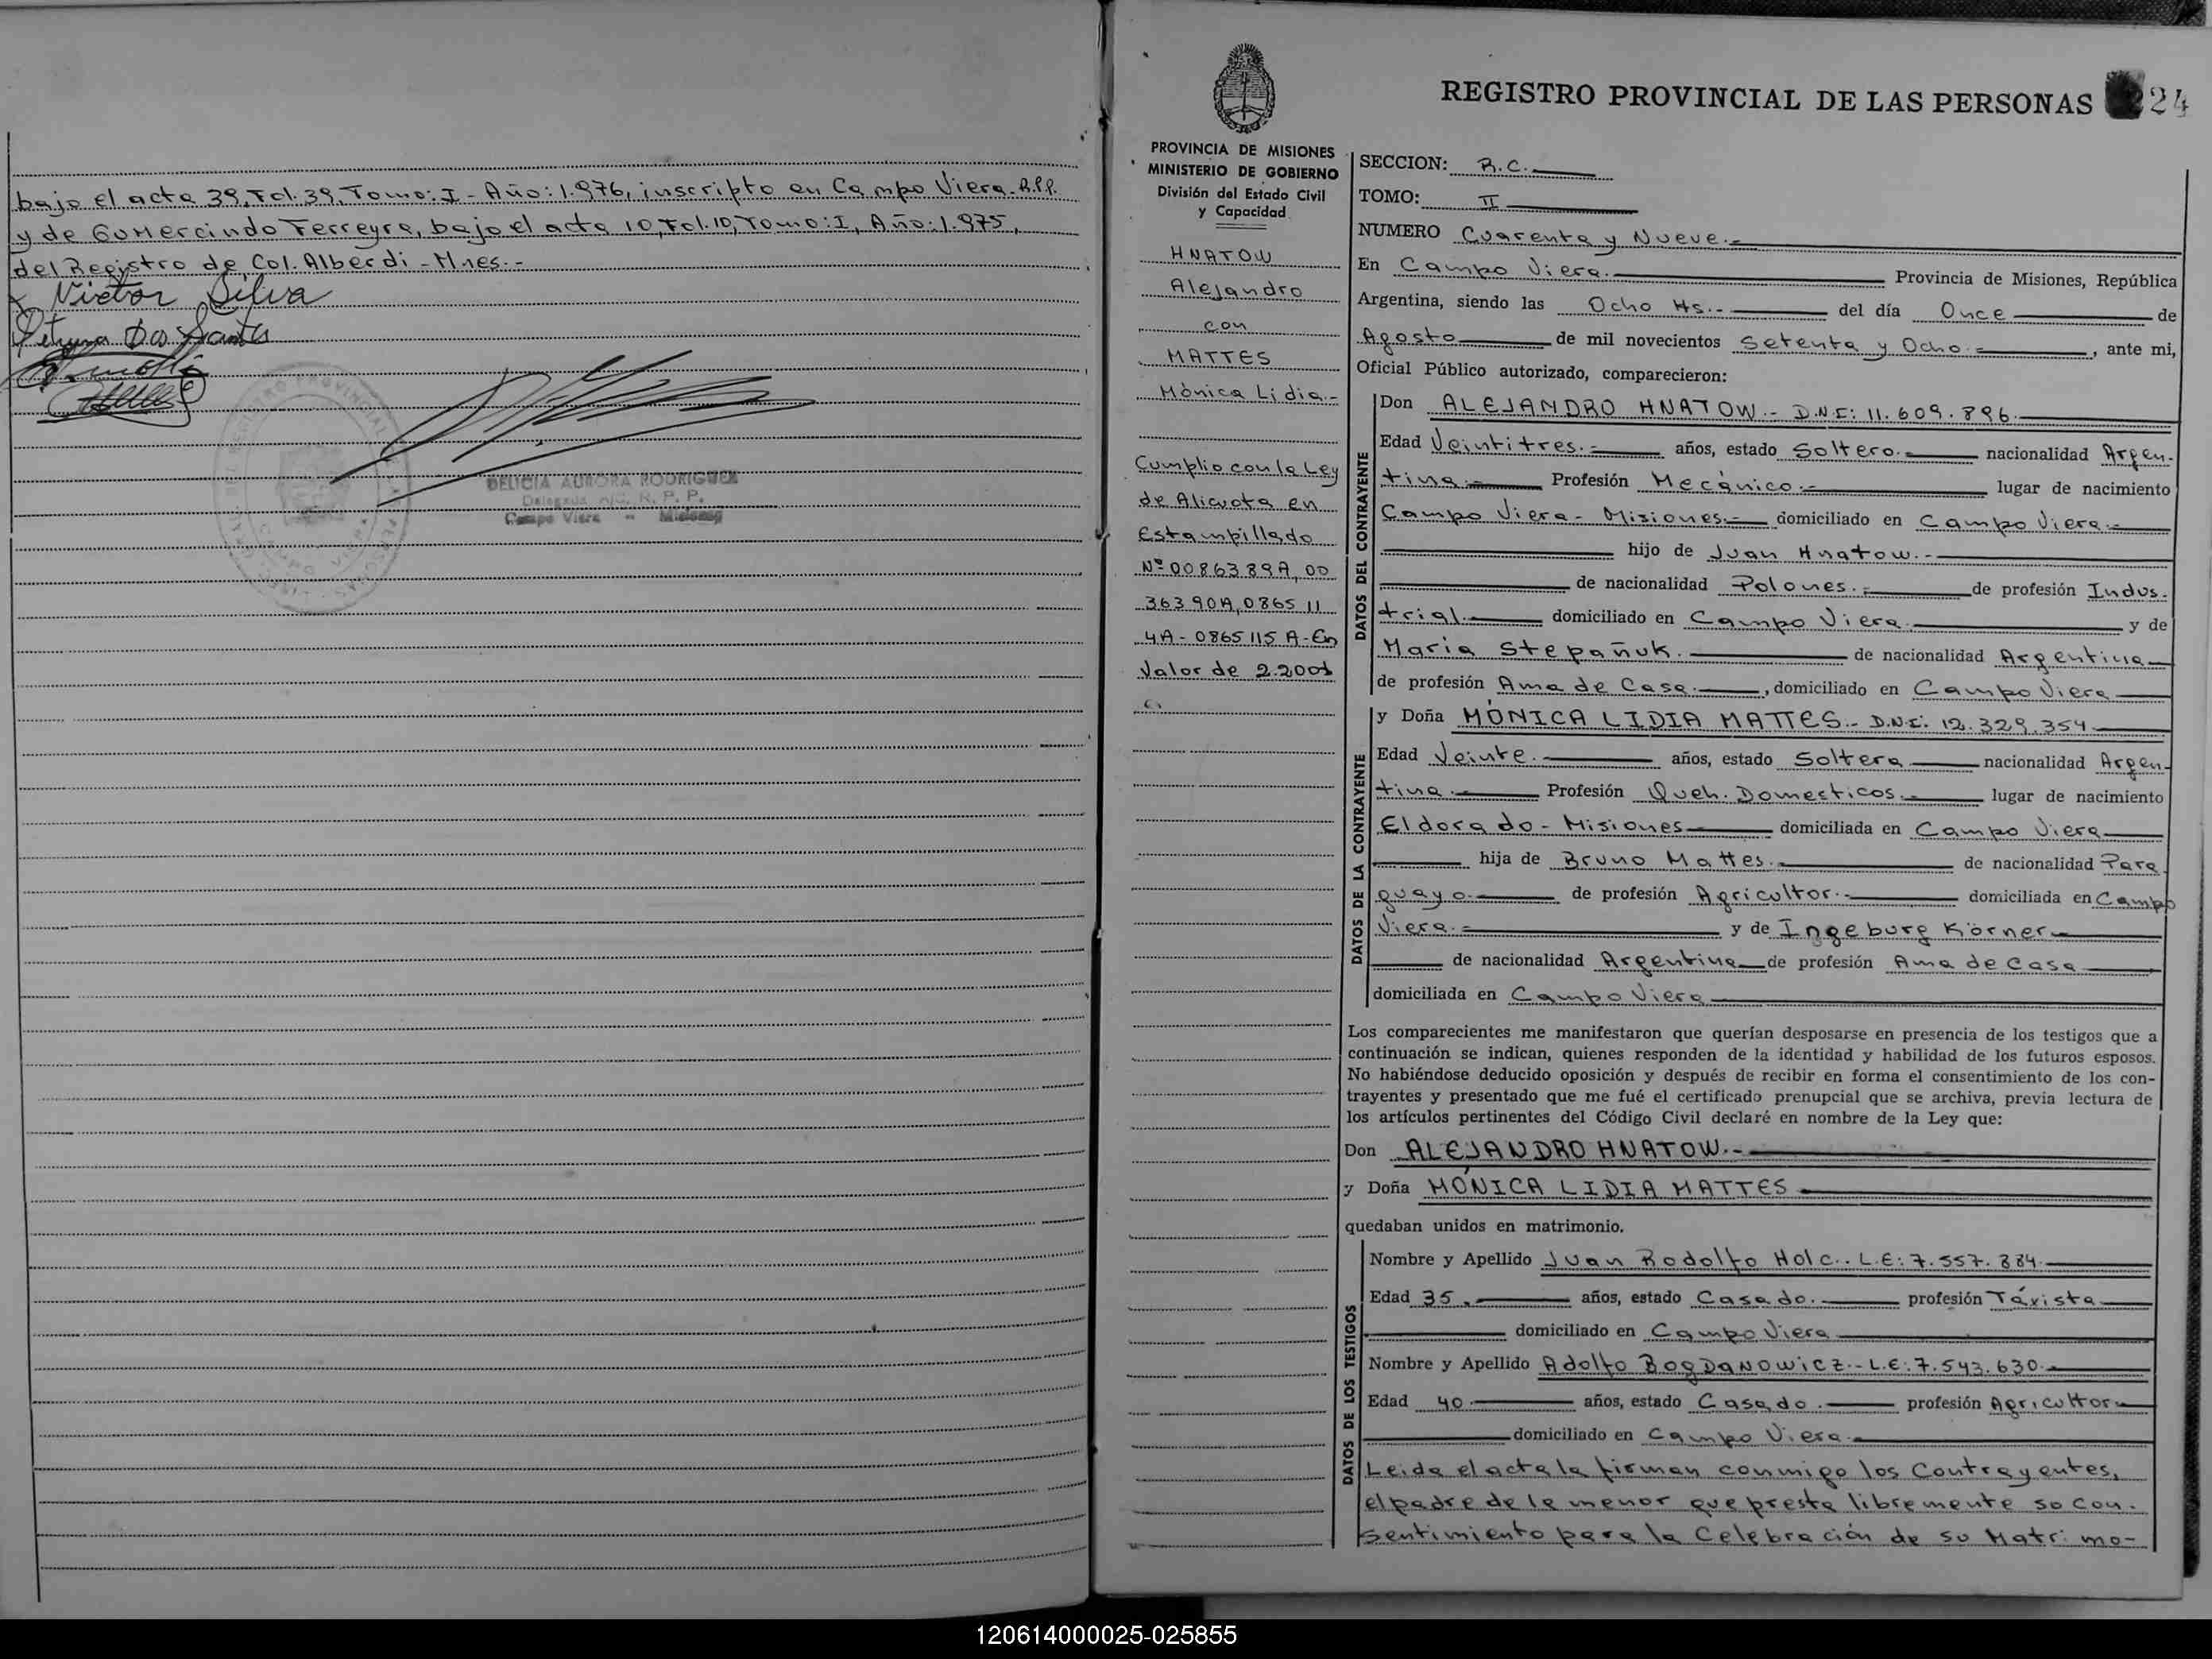 bajo el acta 39, Fol. 39, Tomo: I - Año: 1.976, inscripto en Campo Viera - R.P.P.
y de Gumercindo Ferreyra, bajo el acta 10, Fol. 10, Tomo: I, Año: 1.975,
del Registro de Col. Alberdi - Mnes.-
Victor Silva
Dos Santos
DELICIA AURORA RODRIGUEZ
Delegada R. P. P.
Campo Viera - Misiones
REGISTRO PROVINCIAL DE LAS PERSONAS 224
PROVINCIA DE MISIONES
MINISTERIO DE GOBIERNO
División del Estado Civil
y Capacidad
HNATOW
Alejandro
con
MATTES
Mónica Lidia.-
Cumplio con la Ley
de Alicuota en
Estampillado
Nº 0086389A, 00
36390A, 0865 11
4A - 0865115 A - En
Valor de 2.200$
SECCION: R.C.
TOMO: II
NUMERO Cuarenta y Nueve.-
En Campo Viera. Provincia de Misiones, República
Argentina, siendo las Ocho Hs.- del día Once de
Agosto de mil novecientos Setenta y Ocho.- , ante mi,
Oficial Público autorizado, comparecieron:
DATOS DEL CONTRAYENTE
Don ALEJANDRO HNATOW.- D.N.I: 11.609.896.
Edad Veintitres.- años, estado Soltero.- nacionalidad Argen-
tina.- Profesión Mecánico.- lugar de nacimiento
Campo Viera - Misiones.- domiciliado en Campo Viera.-
hijo de Juan Hnatow.-
de nacionalidad Polones.- de profesión Indus-
trial. domiciliado en Campo Viera. y de
Maria Stepañuk. de nacionalidad Argentina
de profesión Ama de Casa. , domiciliado en Campo Viera
DATOS DE LA CONTRAYENTE
y Doña MÓNICA LIDIA MATTES.- D.N.I: 12.329.354
Edad Veinte. años, estado Soltera nacionalidad Argen-
tina.- Profesión Queh. Domesticos.- lugar de nacimiento
Eldorado - Misiones domiciliada en Campo Viera
hija de Bruno Mattes. de nacionalidad Para
guayo. de profesión Agricultor.- domiciliada en Campo
Viera.- y de Ingeburg Körner
de nacionalidad Argentina de profesión Ama de Casa
domiciliada en Campo Viera
Los comparecientes me manifestaron que querían desposarse en presencia de los testigos que a
continuación se indican, quienes responden de la identidad y habilidad de los futuros esposos.
No habiéndose deducido oposición y después de recibir en forma el consentimiento de los con-
trayentes y presentado que me fué el certificado prenupcial que se archiva, previa lectura de
los artículos pertinentes del Código Civil declaré en nombre de la Ley que:
Don ALEJANDRO HNATOW.-
y Doña MÓNICA LIDIA MATTES
quedaban unidos en matrimonio.
DATOS DE LOS TESTIGOS
Nombre y Apellido Juan Rodolfo Holc.. L.E: 7.557.884.
Edad 35.- años, estado Casado. profesión Táxista
domiciliado en Campo Viera
Nombre y Apellido Adolfo Bogdanowicz.- L.E: 7.543.630.-
Edad 40. años, estado Casado. profesión Agricultor
domiciliado en Campo Viera.
Leida el acta la firman conmigo los Contrayentes,
el padre de la menor que presta libremente so con-
sentimiento para la Celebración de su Matrimo-
120614000025-025855